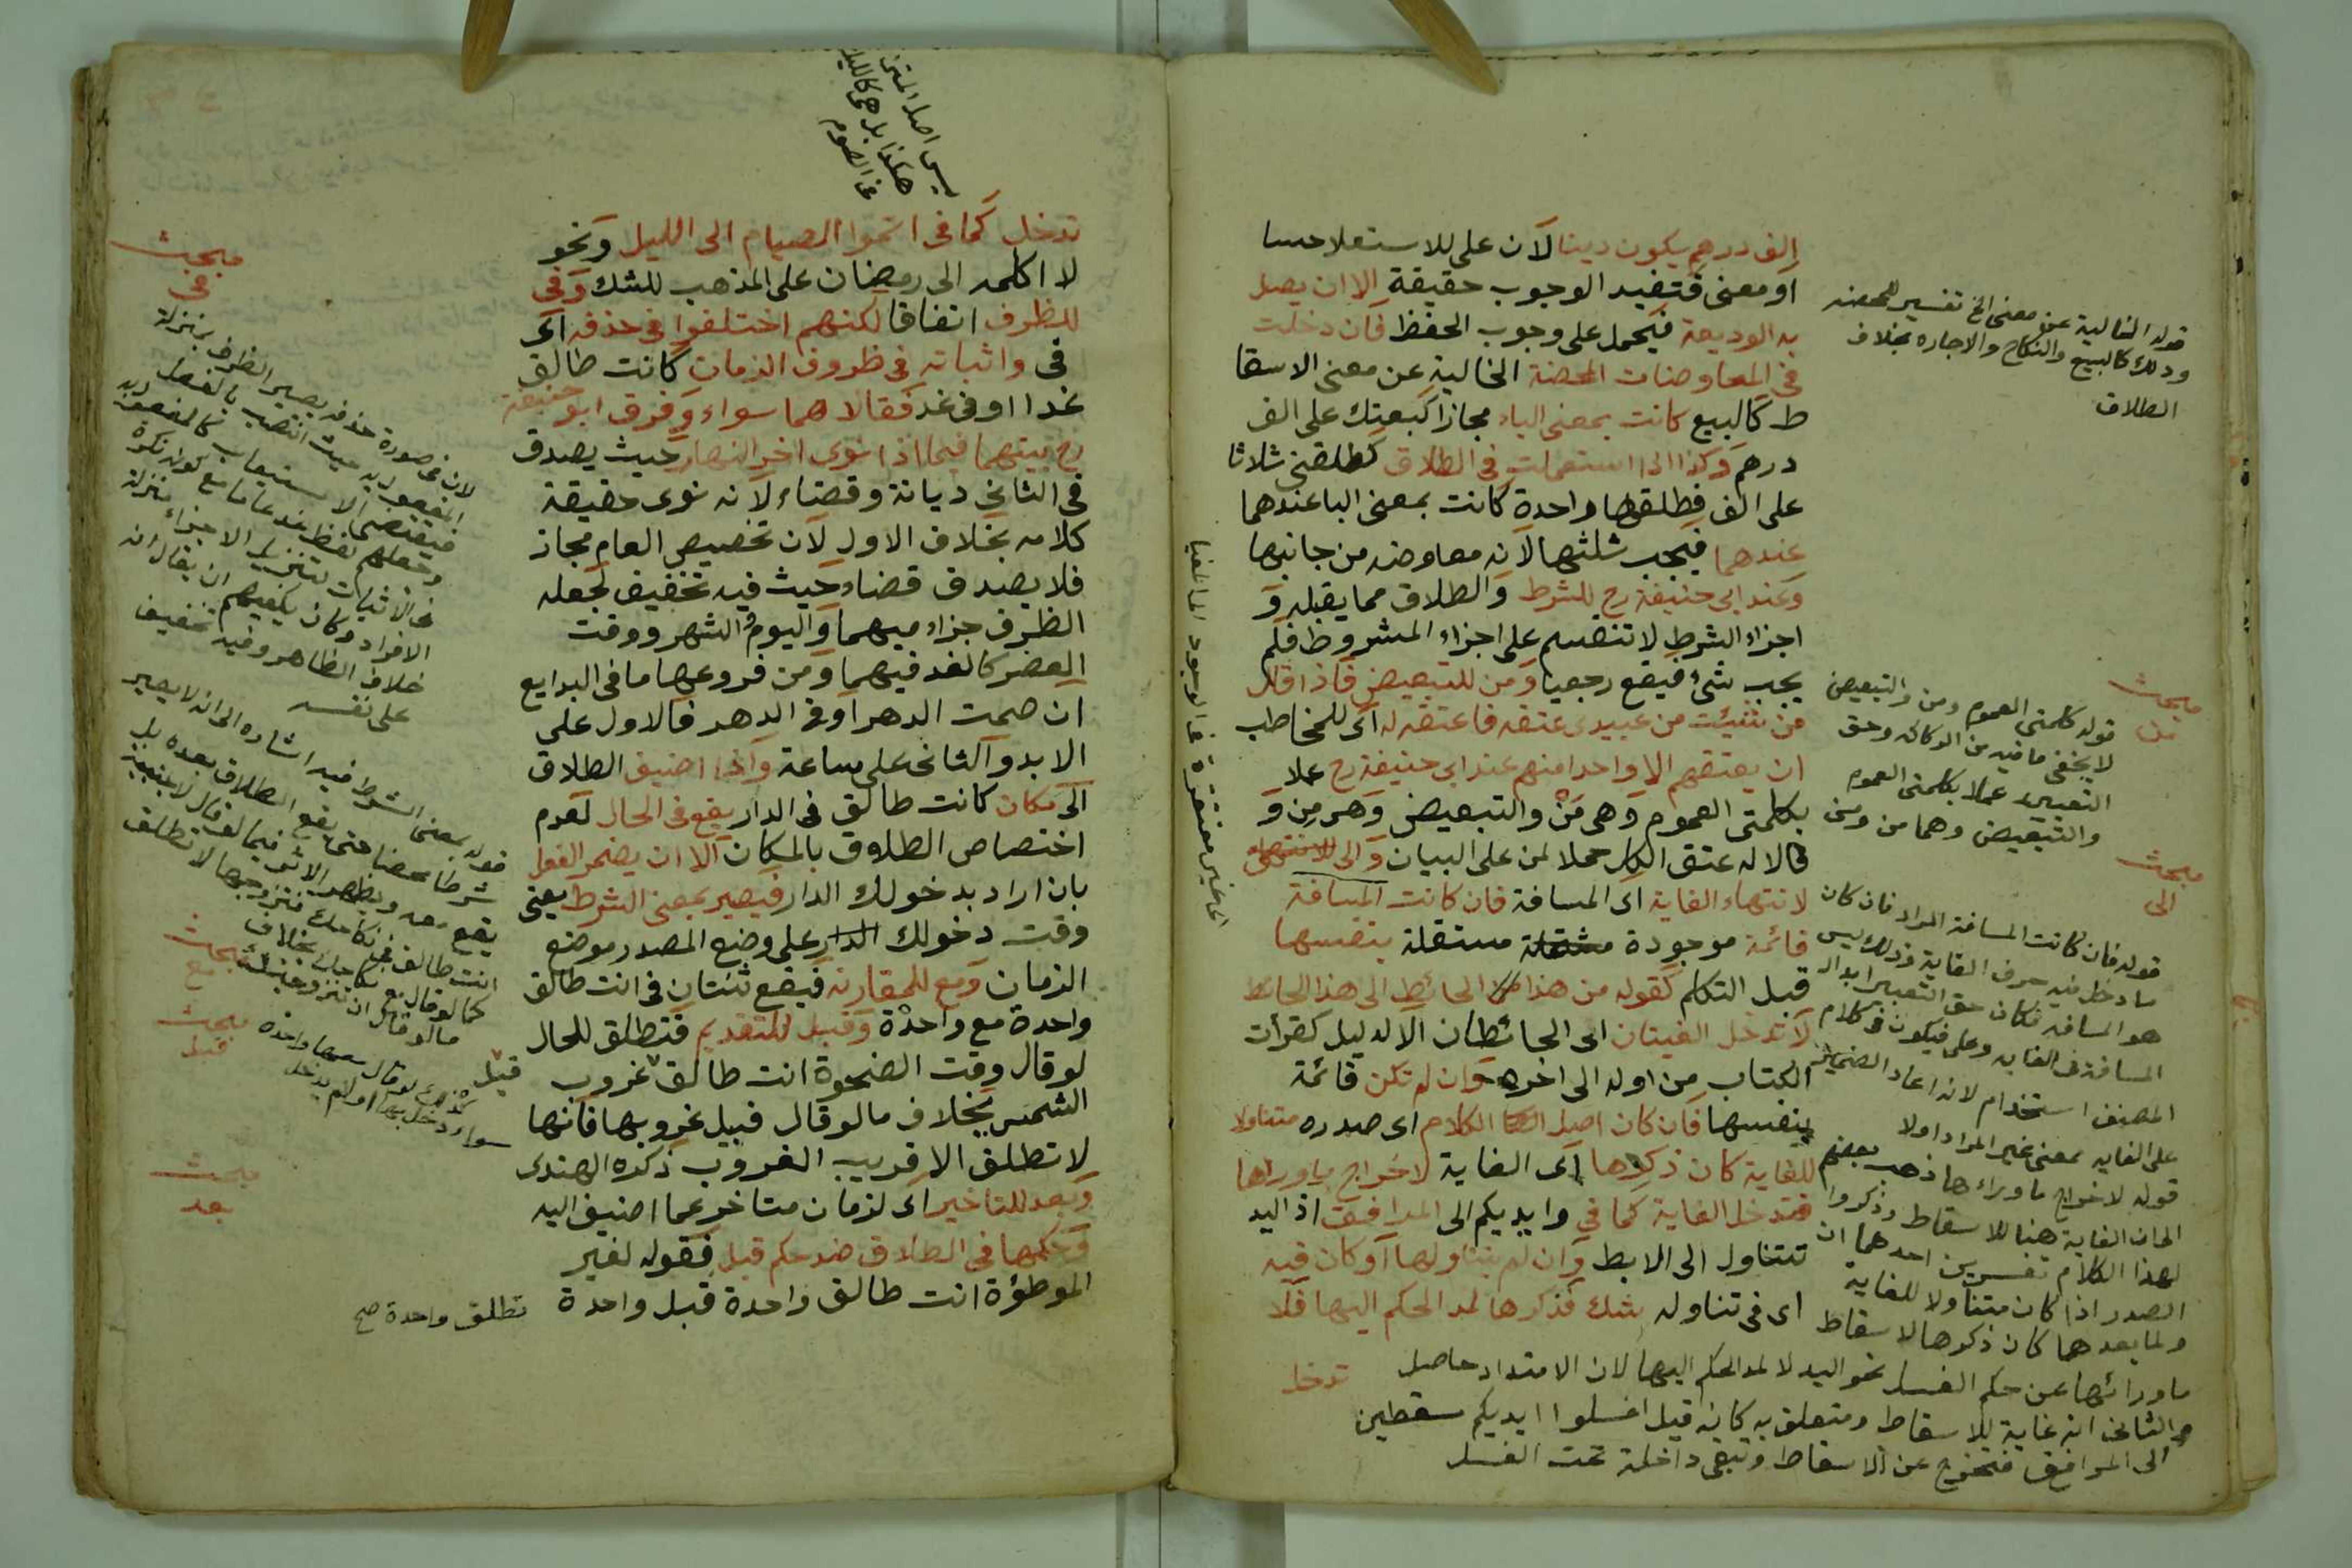 الف درهم يكون دينا لان على للاستعلا حسا
او معنى فتفيد الوجوب حقيقة الا ان يصل
به الوديعة فيحمل على وجوب الحفظ فان دخلت
في المعاوضات المحضة الخالية عن معنى الاسقا
ط كالبيع كانت بمعنى الباء مجازا كبعتك على الف
درهم وكذا اذا استعملت في الطلاق كطلقني ثلاثا
على الف فطلقها واحدة كانت بمعنى البا عندهما
عندهما فيجب ثلثها لانه معاوضه من جانبها
وعند ابي حنيفة رح للشرط والطلاق مما يقبله و
اجزاء الشرط لا تنقسم على اجزاء المشروط فلم
يجب شئ فيقع رجعيا ومن للتبعيض فاذا قال
من شئت من عبيدى عتقه فاعتقه له اى للمخاطب
ان يعتقهم الا واحدا منهم عند ابي حنيفة رح عملا
بكلمتى العموم وهى من والتبعيض وهى من و
قالا له عتق الكل حملا لمن على البيان والى
لانتهاء الغاية اى المسافة فان كانت المسافة
قائمة موجودة مستقلة بنفسها
قبل التكلم كقوله من هذا الحائط الى هذا الحائط
لا تدخل الغيتان اى الحائطان الا لدليل كقرأت
الكتاب من اوله الى اخره وان لم تكن قائمة
بنفسها فان كان اصل الكلام اى صدره متناولا
للغاية كان ذكرها اى الغاية لاخراج ماوراها
فتدخل الغاية كما في وايديكم الى المرافق اذ اليد
تتناول الى الابط وان لم يتناولها او كان فيه
اى في تناوله شك فذكرها لمد الحكم اليها فلا
تدخل
قوله الخالية عن معنى الخ تفسير للمحضه
وذلك كالبيع والنكاح والاجاره بخلاف
الطلاق
مبحث
من
قوله كلمتى العموم ومن والتبعيض
لا يخفى ما فيه من الركاكه وحق
التعبير عملا بكلمتى العموم
والتبعيض وهما من ومن
مبحث
الى
قوله فان كانت المسافة المراد فان كان
ما دخل فيه حرف الغاية وذلك ليس
هو المسافه فكان حق التعبير ابدال
المسافة فى الغايه وعلى فيكون في كلام
المصنف استخدام لانه اعاد الضمائر
على الغايه بمعنى غير المراد اولا
قوله لاخراج ما وراءها ذهب بعضهم
الى ان الغاية هنا للاسقاط وذكروا
لهذا الكلام تفسيرين احدهما ان
الصدر اذا كان متناولا للغاية
ولما بعدها كان ذكرها لاسقاط
ماورائها عن حكم الغسل نحو اليد لا لمد الحكم اليها لان الامتداد حاصل
والثانى انه غاية للاسقاط ومتعلق به كانه قيل اغسلوا ايديكم مسقطين
الى المرافق فتخرج عن الاسقاط وتبقى داخلة تحت الغسل
اى غير مفتقرة فى الوجود الى المغيا
تدخل كما فى اتموا الصيام الى الليل ونحو
لا اكلمه الى رمضان على المذهب للشك وفى
للظرف اتفاقا لكنهم اختلفوا فى حذفه اى
فى واثباته فى ظروف الزمان كانت طالق
غدا او فى غد فقالا هما سواء وفرق ابو حنيفة
رح بينهما فيما اذا نوى اخر النهار حيث يصدق
فى الثانى ديانة وقضاء لانه نوى حقيقة
كلامه بخلاف الاول لان تخصيص العام مجاز
فلا يصدق قضاء حيث فيه تخفيف لجعله
الظرف جزاء مبهما واليوم والشهر ووقت
العصر كالغد فيهما ومن فروعها ما فى البدايع
ان صمت الدهر او فى الدهر فالاول على
الابد والثانى على ساعة واذا اضيف الطلاق
الى مكان كانت طالق فى الدار يقع فى الحال لعدم
اختصاص الطلاق بالمكان الا ان يضمر الفعل
بان اراد بدخولك الدار فيصير بمعنى الشرط يعنى
وقت دخولك الدار على وضع المصدر موضع
الزمان ومع للمقارنة فيقع ثنتان فى انت طالق
واحدة مع واحدة وقبل للتقديم فتطلق للحال
لو قال وقت الضحوة انت طالق قبل غروب
الشمس بخلاف ما لو قال قبيل غروبها فانها
لا تطلق الا قريب الغروب ذكره الهندى
وبعد للتاخير اى لزمان متاخر عما اضيف اليه
وحكمها فى الطلاق ضد حكم قبل فقوله لغير
الموطؤة انت طالق واحدة قبل واحدة
تطلق واحدة صح
مبحث
فى
لان فى صورة حذفه يصير الظرف بمنزلة
المفعول به حيث انتصب بالفعل
فيقتضى الاستيعاب كالمفعول به
خلاف الظاهر وفيه تخفيف
على نفسه
قوله بمعنى الشرط فيه اشاره الى انه لا يصير
شرطا محضا حتى يقع الطلاق بعده بل
يقع معه ويظهر الاثر فيما لو قال لاجنبية
انت طالق فى نكاحك فتزوجها لا تطلق
كما لو قال مع نكاحك بخلاف
ما لو قال ان تزوجتك
مبحث
مع
مبحث
قبل
سواء دخل بها او لم يدخل
مبحث
بعد